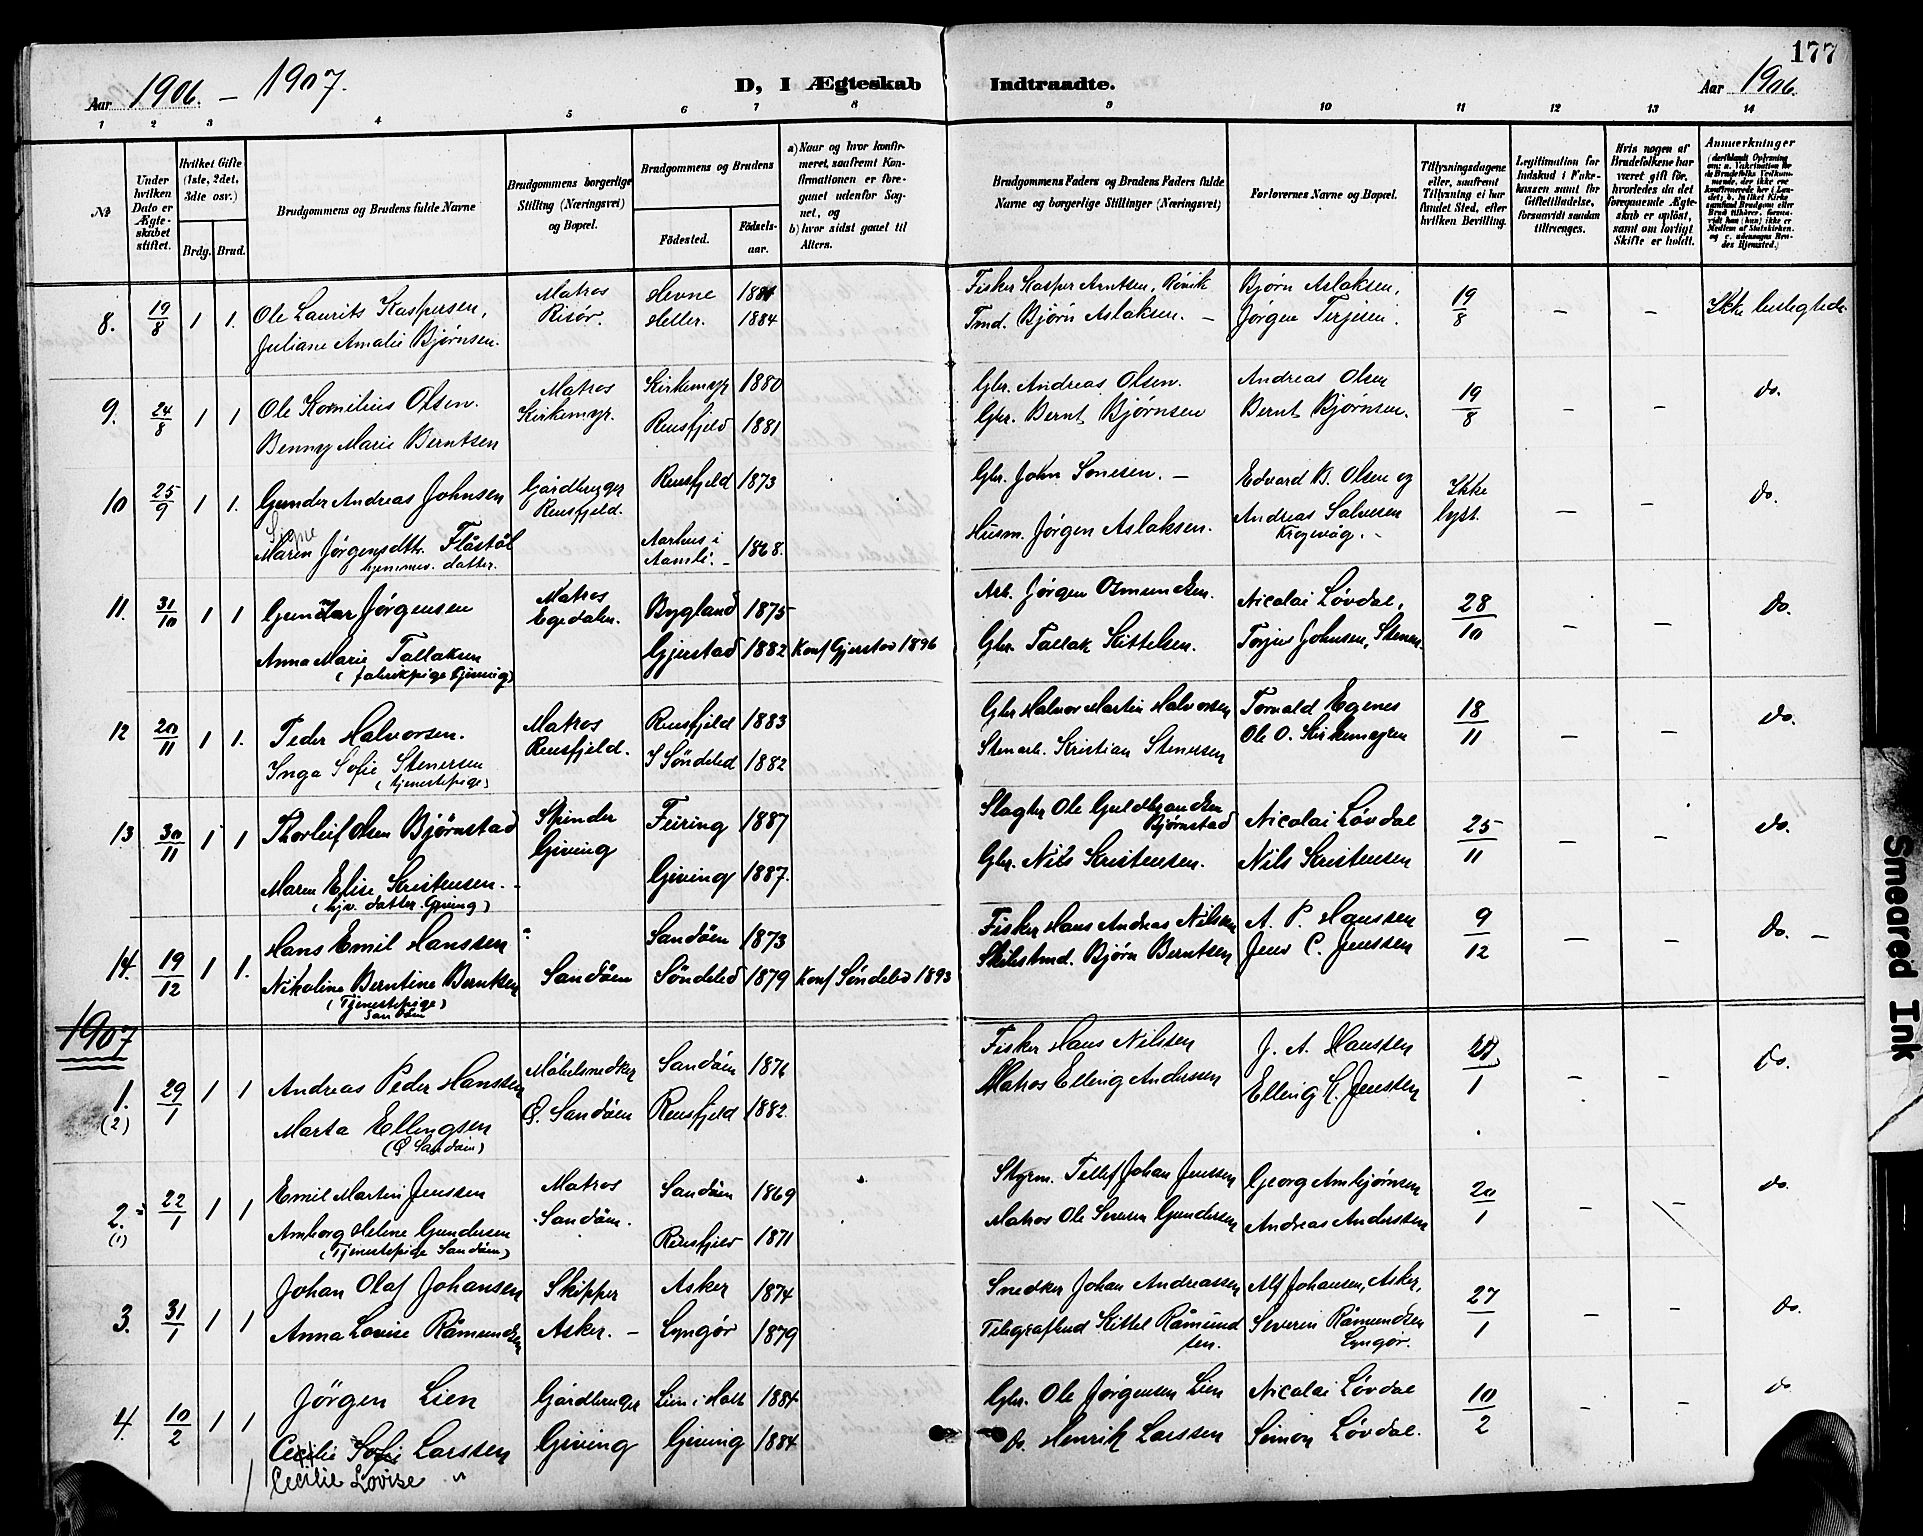 177
Aar 1906. – 1907.
D, I Ægteskab Indtraadte.
Aar 1906.
1 2 3 4 5 6 7 8 9 10 11 12 13 14
№
Under hvilken Dato er Ægteskabet stiftet.
Hvilket Gifte (1ste, 2det, 3die osv.)
Brdg. Brud.
Brudgommens og Brudens fulde Navne
Brudgommens borgerlige Stilling (Næringsvei) og Bopæl.
Brudgommens og Brudens
Fødested.
Fødselsaar.
a) Naar og hvor konfirmeret, saafremt Konfirmationen er foregaaet udenfor Sognet, og
b) hvor sidst gaaet til Alters.
Brudgommens Faders og Brudens Faders fulde Navne og borgerlige Stillinger (Næringsvei)
Forlovernes Navne og Bopæl.
Tillysningsdagene eller, saafremt Tillysning ei har fundet Sted, efter hvilken Bevilling.
Legitimation for Indskud i Enkekassen samt for Giftetilladelse, forsaavidt saadan tiltrænges.
Hvis nogen af Brudefolkene har været gift før, hvorledes da det foregaaende Ægteskab er opløst, samt om lovligt Skifte er holdt.
Anmerkninger
8. 19/8 1 1. Ole Laurits Kaspersen, Matros Hevne 1881 Fisker Kasper Arntsen, Rövik Bjørn Aslaksen, 19/8 – – Ikke beslegtede.
Juliane Amalie Bjørnsen. Risör. Heller. 1884 Tmd. Bjørn Aslaksen. – Jörgen Terjesen.
9. 24/8 1 1 Ole Kornelius Olsen. Matros Kirkemyr 1880 Gbr. Andreas Olsen. Andreas Olsen 19/8 – – do.
Benny Marie Berntsen Kirkemyr. Reusfjeld 1881 Gbr. Bernt Bjørnsen Bernt Bjørnsen.
10 25/9 1 1. Gunder Andreas Johnsen Gårdbruger Reusfjeld 1873 Gbr. John Sonesen. – Edvard B. Olsen og Ikke lyst. – – do.
Signe
Maren Jørgensdtr. Flåstöl Reusfjeld. Aarhus i Aamli. – 1868. Husm. Jørgen Aslaksen. Andreas Salvesen
hjemmev. datter. Krogvåg. –
11. 31/10 1 1 Gunnar Jørgensen Matros Bygland 1875 Arb. Jørgen Osmundsen. Nicolai Lövdal, 28/10 – – do.
Anna Marie Tallaksen Egedalen. Gjerstad 1882 Konf Gjerstad 1896 Gbr. Tallak Kittelsen. Torjus Johnsen, Stenen.
(fabrikpige Gjeving)
12 20/11 1 1. Peder Halvorsen. Matros Reusfjeld 1883 Gbr Halvor Martin Halvorsen Torvald Egenes 18/11 – – do.
Inga Sofie Stenersen Reusfjeld. S Søndeled 1882 Stenarb. Kristian Stenersen Ole O. Kirkemyren
(tjenestepige)
13 30/11 1 1 Thorleif Olsen Bjørnstad Spinder Feiring 1887 Slagter Ole Guldbrandsen Bjørnstad Nicolai Lövdal 25/11 – – do.
Maren Elise Kristensen. Giving Giving 1887. Gbr. Nils Kristensen. Nils Kristensen
(hjv. datter. Gjeving)
14. 19/12 1 1. Hans Emil Hanssen Sandöen 1873 Fisker Hans Andreas Nilssen A. P. Hanssen 9/12 – – do. –
Nikoline Berntine Berntsen Sandöen Söndeled 1879 Konf Söndeled 1893 Skibstmd. Bjørn Berntsen Jens C. Jenssen
(Tjenestepige) Sandöen
1907
1. (2) 29/1 1 1 Andreas Peder Hanssen Möbelsnedker Sandöen 1876 Fisker Hans Nilssen J. A. Hanssen /1 – – do.
Marta Ellingsen Ö. Sandöen Reusfjeld 1882 Matros Elling Anderssen Elling K. Jenssen
(Ö Sandöen)
2. (1) 22/1 1 1 Emil Martin Jenssen Matros Sandöen 1869 Styrm. Tellef Johan Jenssen Georg Ambjørnsen 20/1 – – do.
Amborg Helene Gundersen Sandöen. Reusfjeld 1871 Matros Ole Severin Gundersen Andreas Anderssen
(Tjenestepige Sandöen)
3. 31/1 1 1 Johan Olaf Johansen Skipper Asker 1874 Snedker Johan Andreassen Alf Johansen, Asker, 27/1 – – do.
Anna Lovise Råmundsen Asker. – Lyngör 1879 Telegrafbud Kittel Råmundsen. Severin Råmundsen Lyngör.
4. 10/2 1 1 Jörgen Lien Gårdbruger Lien i Holt 1884 Gbr. Ole Jørgensen Lien Nicolai Lövdal 10/2 – – do
Cecilie Sofie Larssen Giving Giving 1884 do. Henrik Larssen Simon Lövdal.
Cecilie Lovise "
Smeared Ink